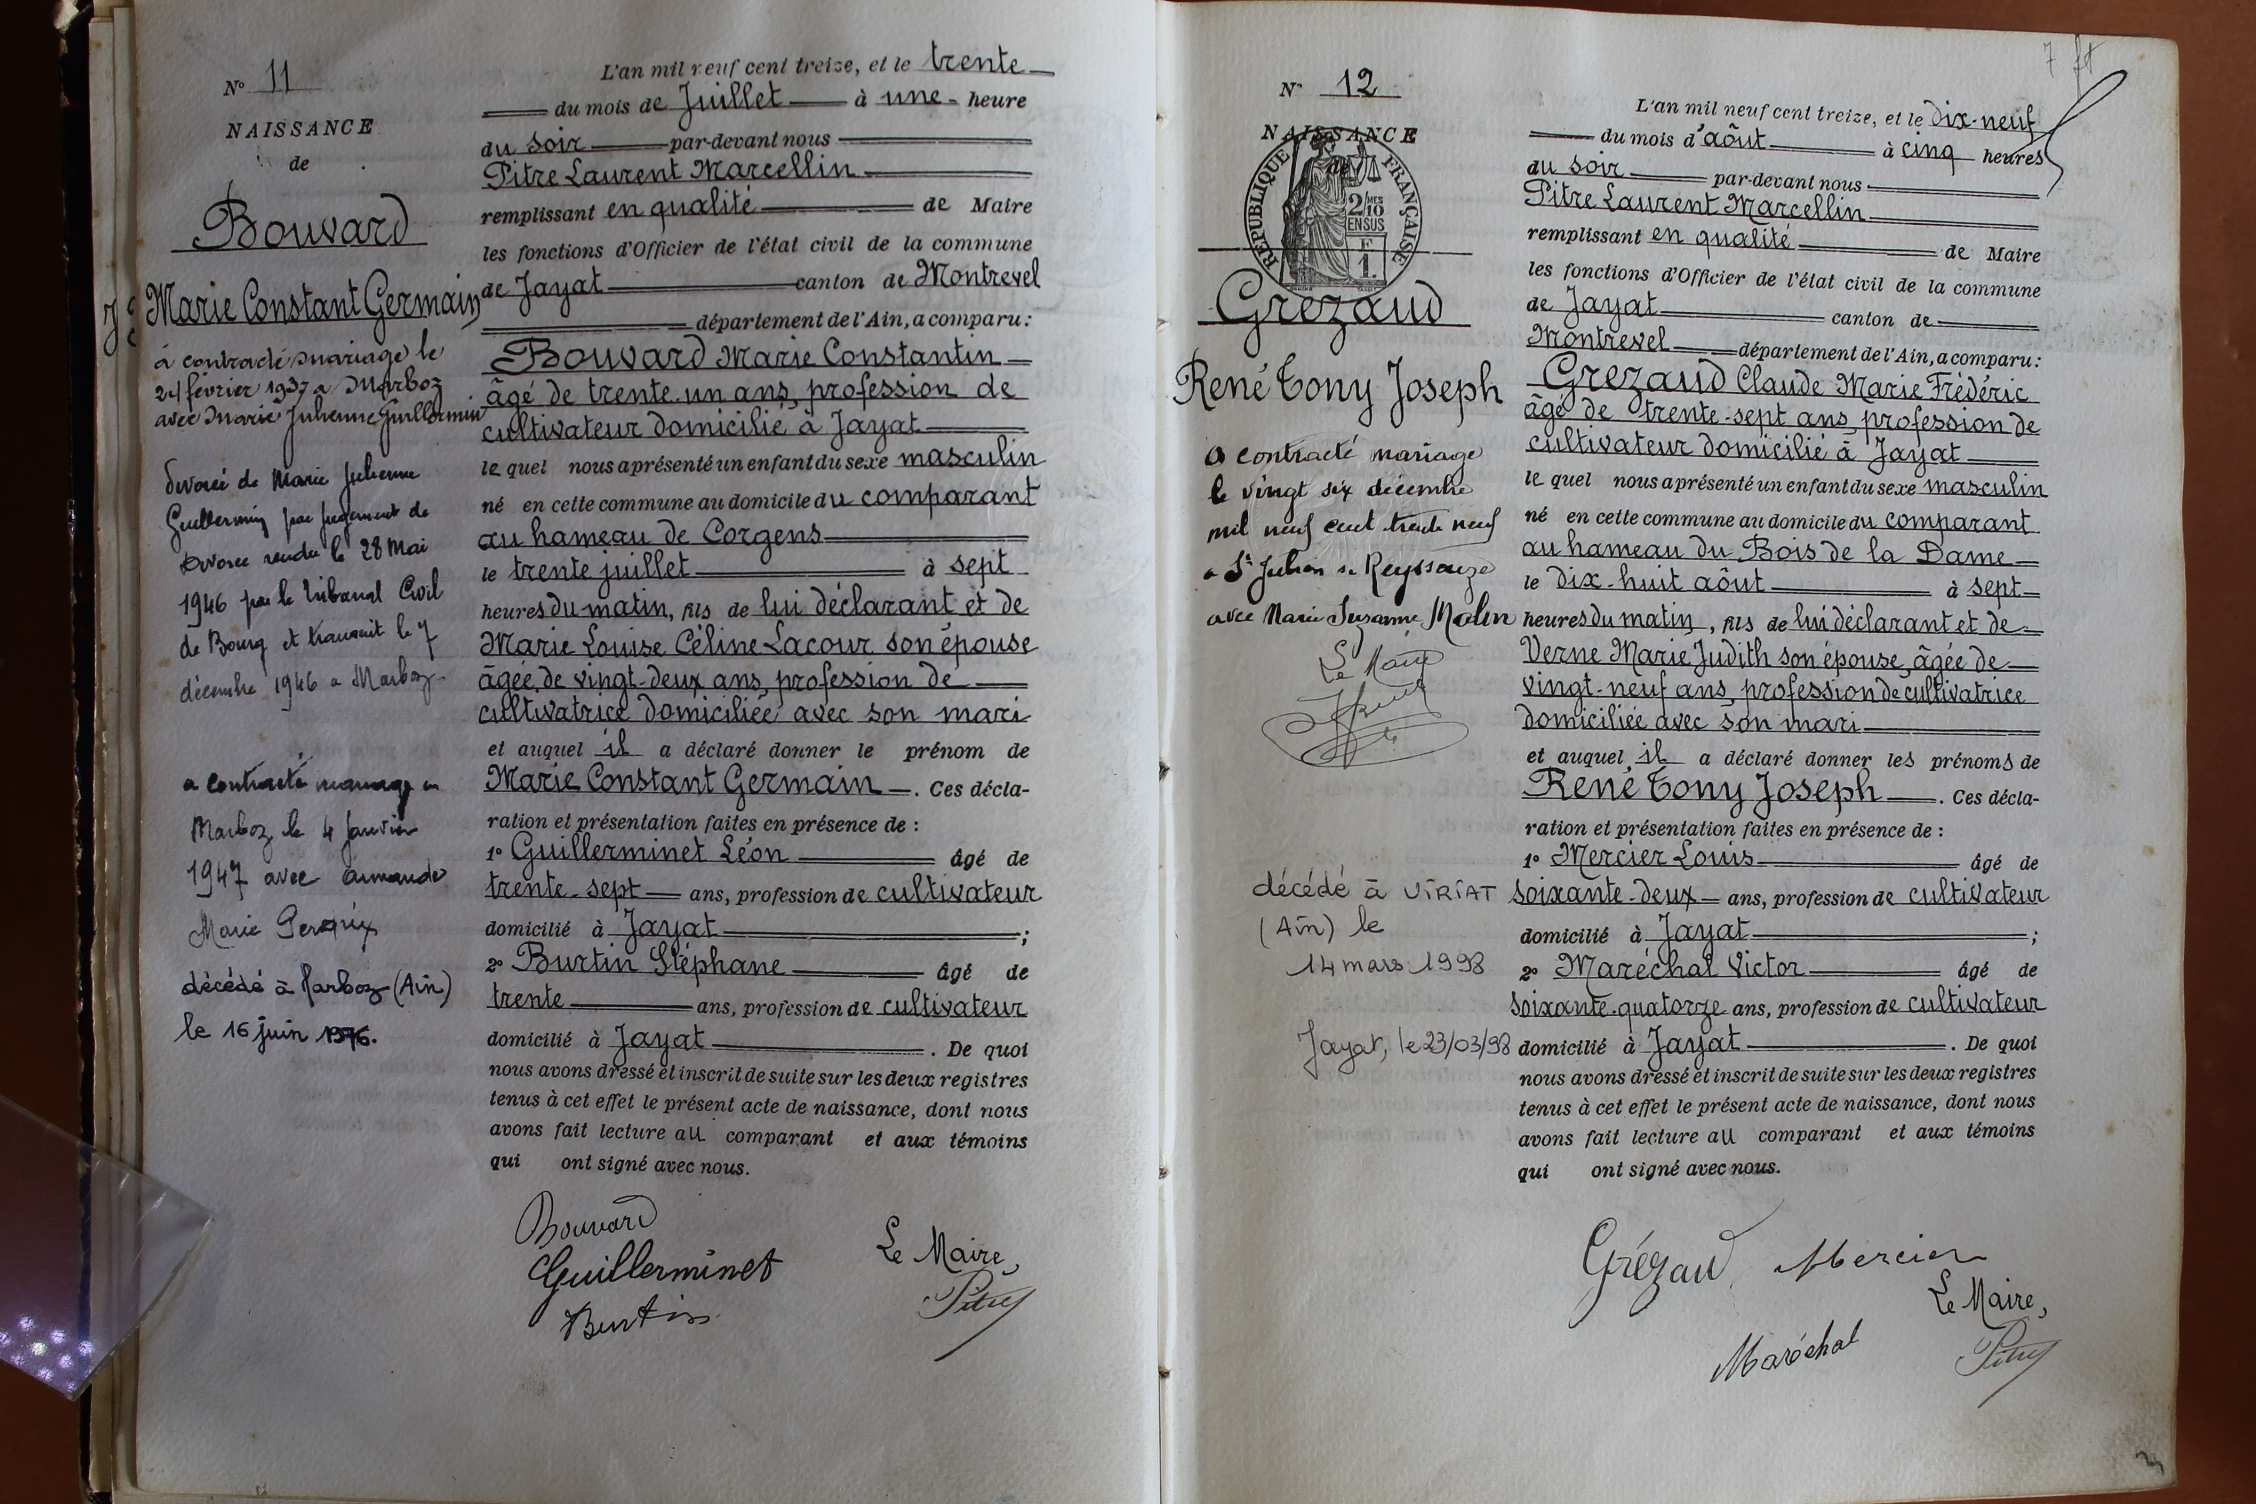 N° 11
NAISSANCE
de
Bouvard
Marie Constant Germain
a contracté mariage le
24 février 1937 à Marboz
avec Marie Julienne Guillermin
Divorcé de Marie Julienne
Guillermin par jugement de
Divorce rendu le 28 Mai
1946 par le Tribunal Civil
de Bourg et transcrit le 7
décembre 1946 à Marboz
a contracté mariage en
Marboz le 4 Janvier
1947 avec Armande
Marie
décédé à Marboz (Ain)
le 16 juin 1976.
L'an mil neuf cent treize, et le trente
du mois de Juillet à une heure
du soir par-devant nous
Pitre Laurent Marcellin
remplissant en qualité de Maire
les fonctions d'Officier de l'état civil de la commune
de Jayat canton de Montrevel
département de l'Ain, a comparu :
Bouvard Marie Constantin
âgé de trente-un ans, profession de
cultivateur domicilié à Jayat
le quel nous a présenté un enfant du sexe masculin
né en cette commune au domicile du comparant
au hameau de Corgens
le trente juillet à sept
heures du matin, fils de lui déclarant et de
Marie Louise Céline Lacour son épouse
âgée de vingt-deux ans, profession de
cultivatrice domiciliée avec son mari
et auquel il a déclaré donner le prénom de
Marie Constant Germain. Ces décla-
ration et présentation faites en présence de :
1° Guillerminet Léon âgé de
trente-sept ans, profession de cultivateur
domicilié à Jayat ;
2° Burtin Stéphane âgé de
trente ans, profession de cultivateur
domicilié à Jayat . De quoi
nous avons dressé et inscrit de suite sur les deux registres
tenus à cet effet le présent acte de naissance, dont nous
avons fait lecture au comparant et aux témoins
qui ont signé avec nous.
Bouvard
Guillerminet
Burtin
Le Maire,
Pitre
N° 12
NAISSANCE
de
RÉPUBLIQUE FRANÇAISE
2 MES
10
EN SUS
F
1.
Grezaud
René Tony Joseph
a contracté mariage
le vingt six décembre
mil neuf cent trente neuf
à St Julien s/ Reyssouze
avec Marie Suzanne Molin
Le Maire
décédé à VIRIAT
(Ain) le
14 mars 1998
Jayat, le 23/03/98
L'an mil neuf cent treize, et le dix-neuf
du mois d'aôut à cinq heures
du soir par-devant nous
Pitre Laurent Marcellin
remplissant en qualité de Maire
les fonctions d'Officier de l'état civil de la commune
de Jayat canton de
Montrevel département de l'Ain, a comparu :
Grezaud Claude Marie Frédéric
âgé de trente-sept ans, profession de
cultivateur domicilié à Jayat
le quel nous a présenté un enfant du sexe masculin
né en cette commune au domicile du comparant
au hameau du Bois de la Dame
le dix-huit aôut à sept
heures du matin, fils de lui déclarant et de
Verne Marie Judith son épouse, âgée de
vingt-neuf ans, profession de cultivatrice
domiciliée avec son mari
et auquel il a déclaré donner les prénoms de
René Tony Joseph . Ces décla-
ration et présentation faites en présence de :
1° Mercier Louis âgé de
soixante-deux ans, profession de cultivateur
domicilié à Jayat ;
2° Maréchal Victor âgé de
soixante-quatorze ans, profession de cultivateur
domicilié à Jayat . De quoi
nous avons dressé et inscrit de suite sur les deux registres
tenus à cet effet le présent acte de naissance, dont nous
avons fait lecture au comparant et aux témoins
qui ont signé avec nous.
Grézaud Mercier
Le Maire,
Maréchal
Pitre